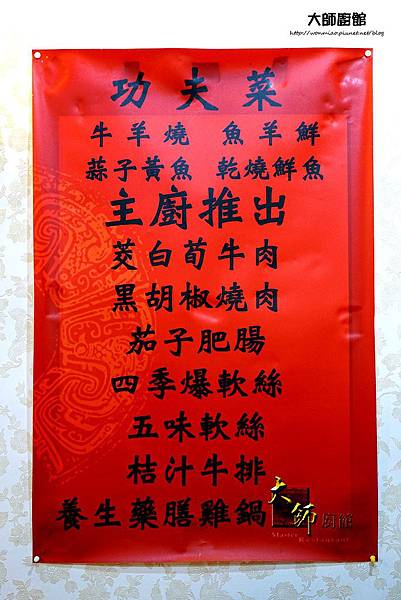 大師廚館
http://wonmiao.pixnet.net/blog
功夫菜
牛羊燒 魚羊鮮
蒜子黃魚 乾燒鮮魚
主廚推出
茭白荀牛肉
黑胡椒燒肉
茄子肥腸
四季爆軟絲
五味軟絲
桔汁牛排
養生藥膳雞鍋
大師廚館
Master Restaurant